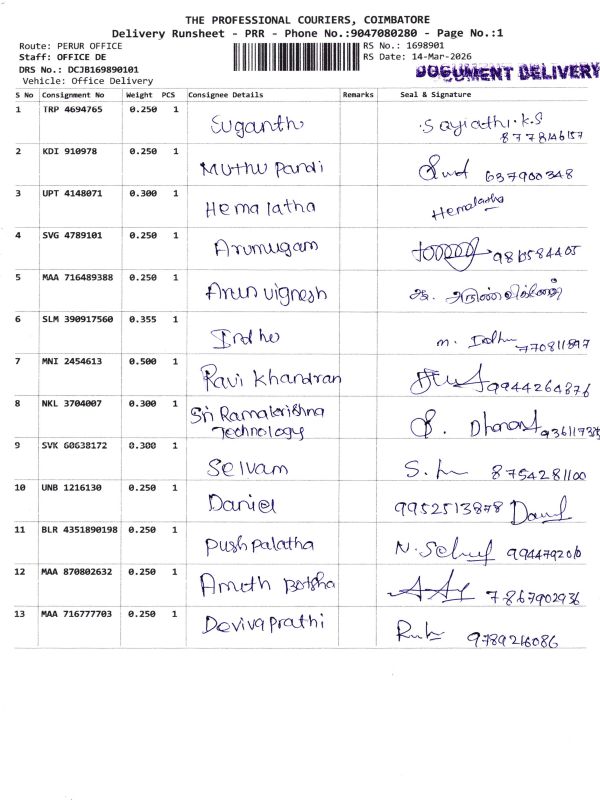 THE PROFESSIONAL COURIERS, COIMBATORE
Delivery Runsheet - PRR - Phone No.:9047080280 - Page No.:1
Route: PERUR OFFICE RS No.: 1698901
Staff: OFFICE DE RS Date: 14-Mar-2026
DRS No.: DCJB169890101 DOCUMENT DELIVERY
Vehicle: Office Delivery
S No Consignment No Weight PCS Consignee Details Remarks Seal & Signature
1 TRP 4694765 0.250 1 Suganth
8778146157
2 KDI 910978 0.250 1 Muthu Pandi 637900348
3 UPT 4148071 0.300 1 Hemalatha Hemalatha
4 SVG 4789101 0.250 1 Arumugam
5 MAA 716489388 0.250 1 Arun vignesh
6 SLM 390917560 0.355 1 Indhu m. Indhu
7 MNI 2454613 0.500 1 Ravi Khandran 9944264876
8 NKL 3704007 0.300 1 Sri Ramakrishna
Technology
9 SVK 60638172 0.300 1 Selvam 8754281100
10 UNB 1216130 0.250 1 Daniel 9952513878
11 BLR 4351890198 0.250 1 Pushpalatha
12 MAA 870802632 0.250 1 7867902936
13 MAA 716777703 0.250 1 9789216086